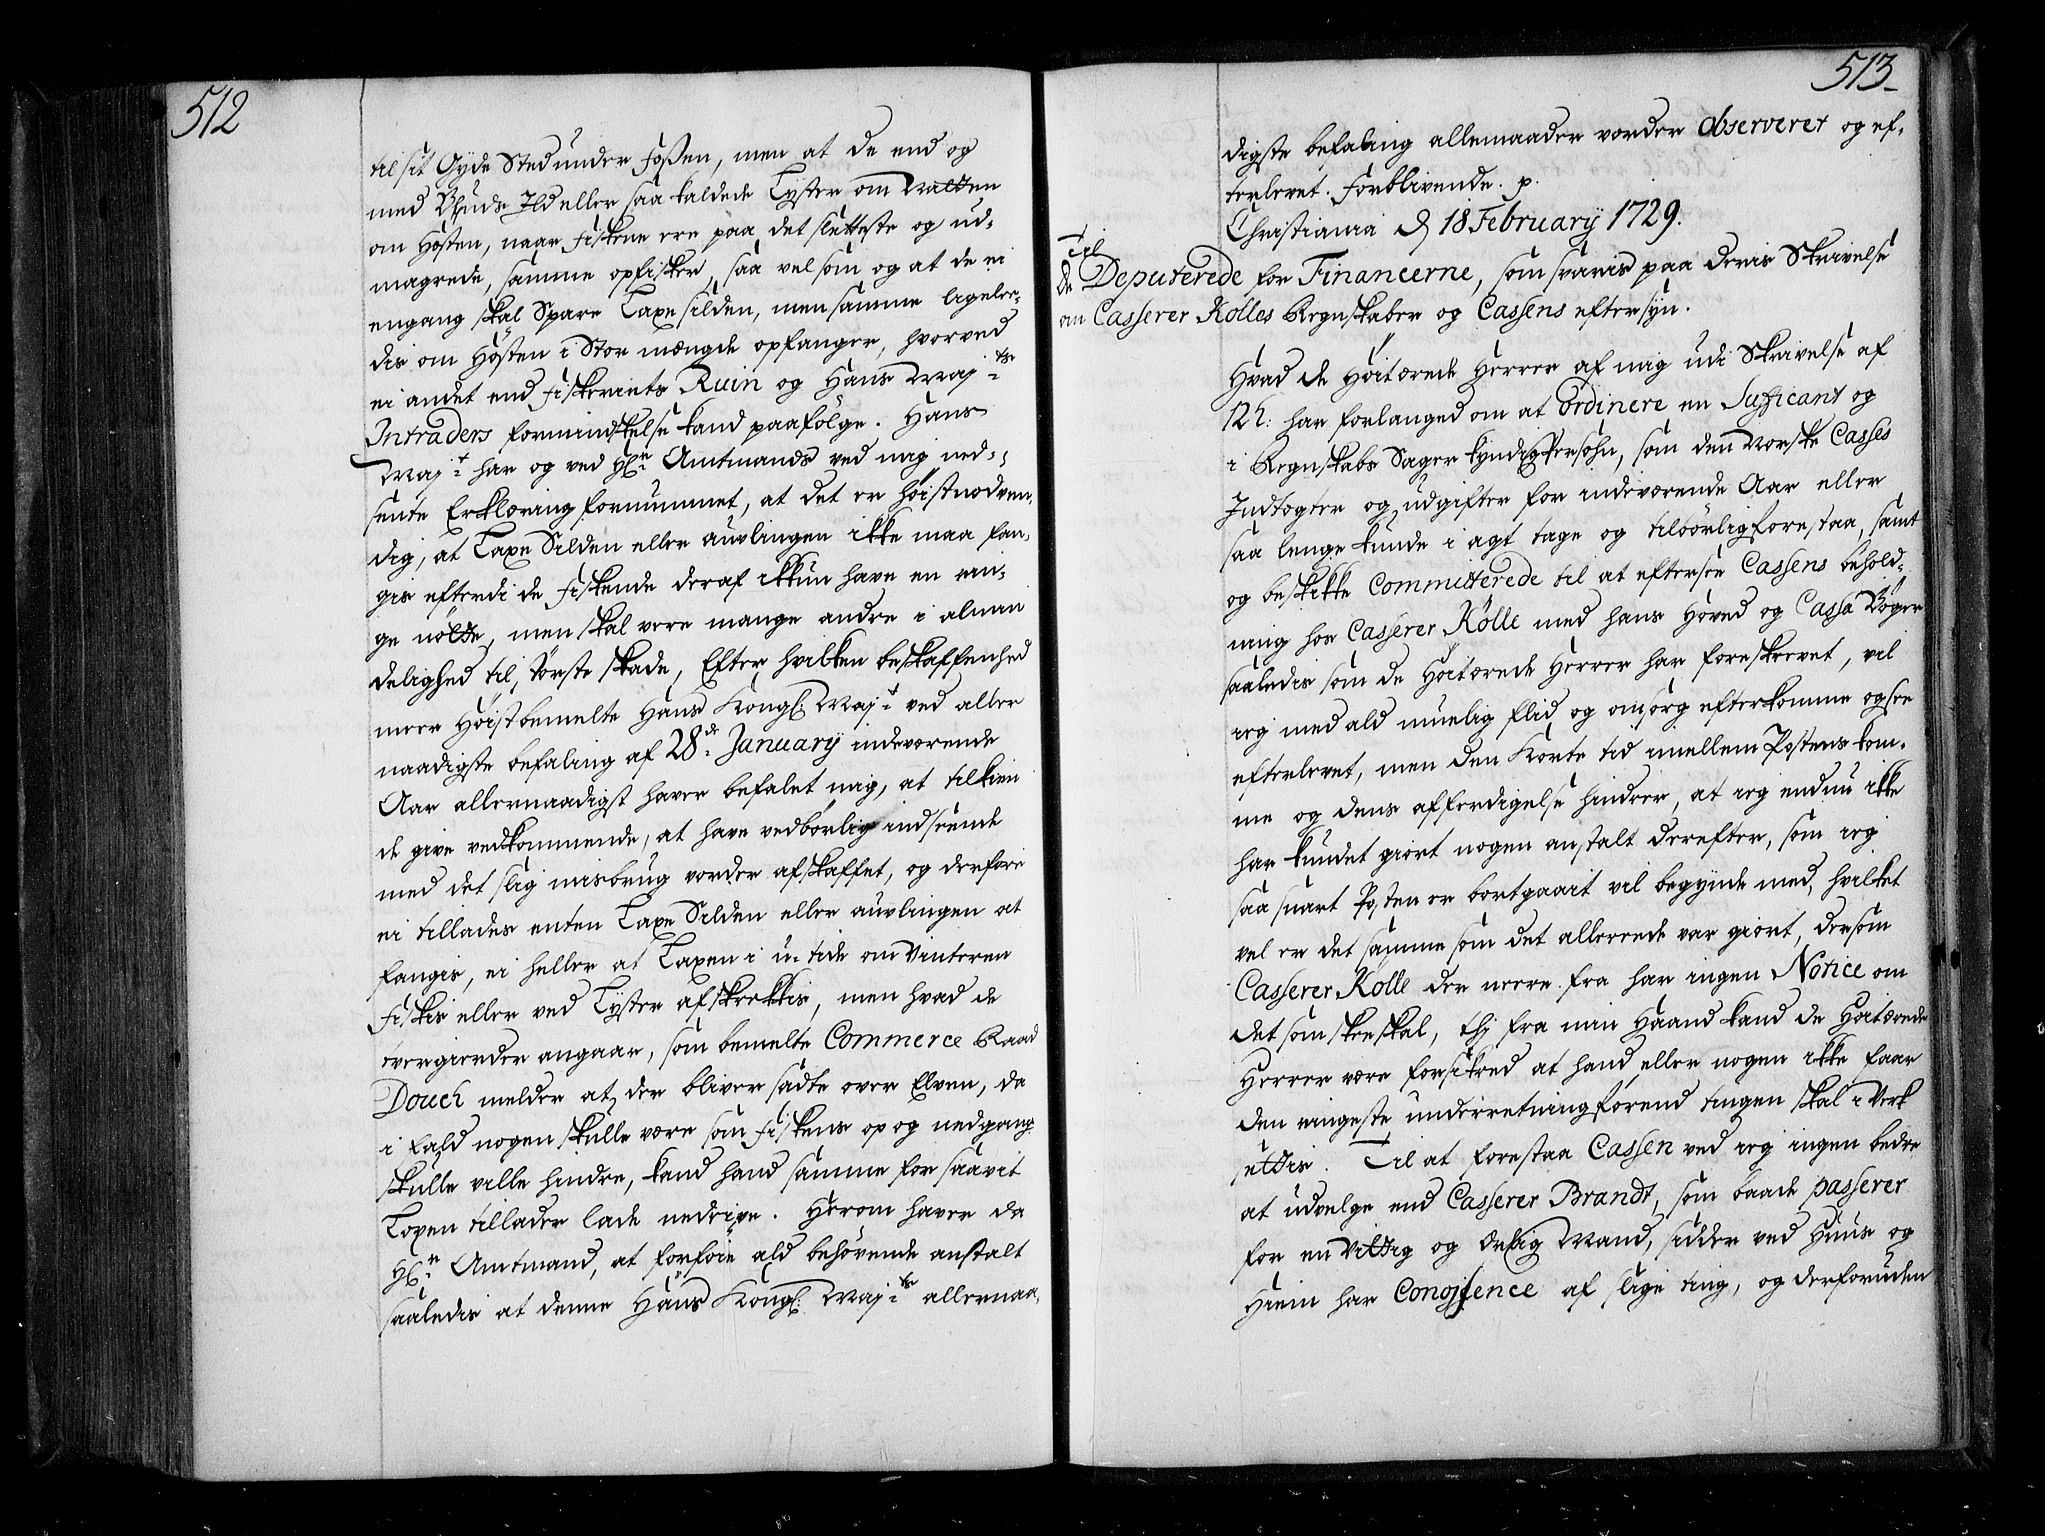 512
til sit Gyde Sted under Foßen, men at de end og
med Bluds Ild eller saa kaldede Lyster om Natten
om Høsten, naar Fiskene ere paa det sletteste og ud-
magrede, samme opfisker, saa vel som og at de ei
engang skal Spare Laxe silden, men samme ligele-
dis om Høsten i Stor mængde opfanger, hvorved
ei andet end Fiskeriets Ruin og Hans May:ts
Intraders formindskelse kand paafølge. Hans
May:t har og ved Hr: Amtmands ved mig ned-
sente Erklæring fornummet, at det er høistnødven-
dig, at Laxe Silden eller auvlingen ikke maa fan-
gis efterdi de Fiskende deraf ikkun have en rin-
ge nøtte, men skal vere mange andre i almin
delighed til største skade, Efter hvilken beskaffenhed
meer Høistbemelte Hans Kongl: May:t ved aller
naadigste befaling af 28de January indeværende
Aar allernaadigst haver befalet mig, at tilkien
de give vedkommende, at have vedbørlig indseende
med det slig misbrug vorder afskaffet, og derfore
ei tillades enten Laxe Silden eller auvlingen at
fangis, ei heller at Laxen i u-tide om Vinteren
Fiskis eller ved Lyster afskrekkis, men hvad de
overgierder angaar, som bemelte Commerce Raad
Douch melder at der bliver sadte over Elven, da
i fald nogen skulle være som Fiskens op og nedgang
skulle ville hindre, kand hand samme for saavit
Loven tillader lade nedrive. Herom haver da
Hr: Amtmand, at forføie ald behøvende anstalt
saaledis at denne Hans Kongl: May:ts allernaa-
513
digste befaling allemaader vorder observeret og ef-
terlevet. Forblivende. p.
Christiania d 18 February 1729.
Til
de Deputerede for Financerne, som svaris paa deris Skrivelse
om Casserer Kølles Regnskaber og Cassens eftersyn.
Hvad de Høitærede Herrer af mig udi Skrivelse af
12t: har forlanged om at ordinere en Sufficant og
i Regnskabs Sager kyndig Persohn, som den Norske Casses
Indtogter og udgifter for indeværende Aar eller
saa lenge kunde i agt tage og tilbørlig forestaa, samt
og beskikke Committerede til at eftersee Cassens behold-
ning hos Casserer Kølle med hans Hoved og Cassa Bøger
saaledis som de Høitærede Herrer har foreskrevet, vil
ieg med ald muelig flid og omsorg efterkomme og see
efterlevet, men den Korte tid imellem Postens kom-
me og dens afferdigelse hindrer, at ieg endnu ikke
har kundet giort nogen anstalt derefter, som ieg
saa snart Posten er bortgaait vil begynde med, hvilket
vel er det samme som det allerede var giort, dersom
Casserer Kølle der neere fra har ingen Notice om
det som skee skal, thj fra min Haand kand de Høitærede
Herrer være forsikred at hand eller nogen ikke faar
den ringeste underretning førend tingen skal i Verk
settis. Til at forestaa Cassen ved ieg ingen bedre
at udvelge end Casserer Brandt, som baade passerer
for en Vittig og Ærlig Mand, sidder ved Huus og
Hiem har Conoissence af slige ting, og derforuden